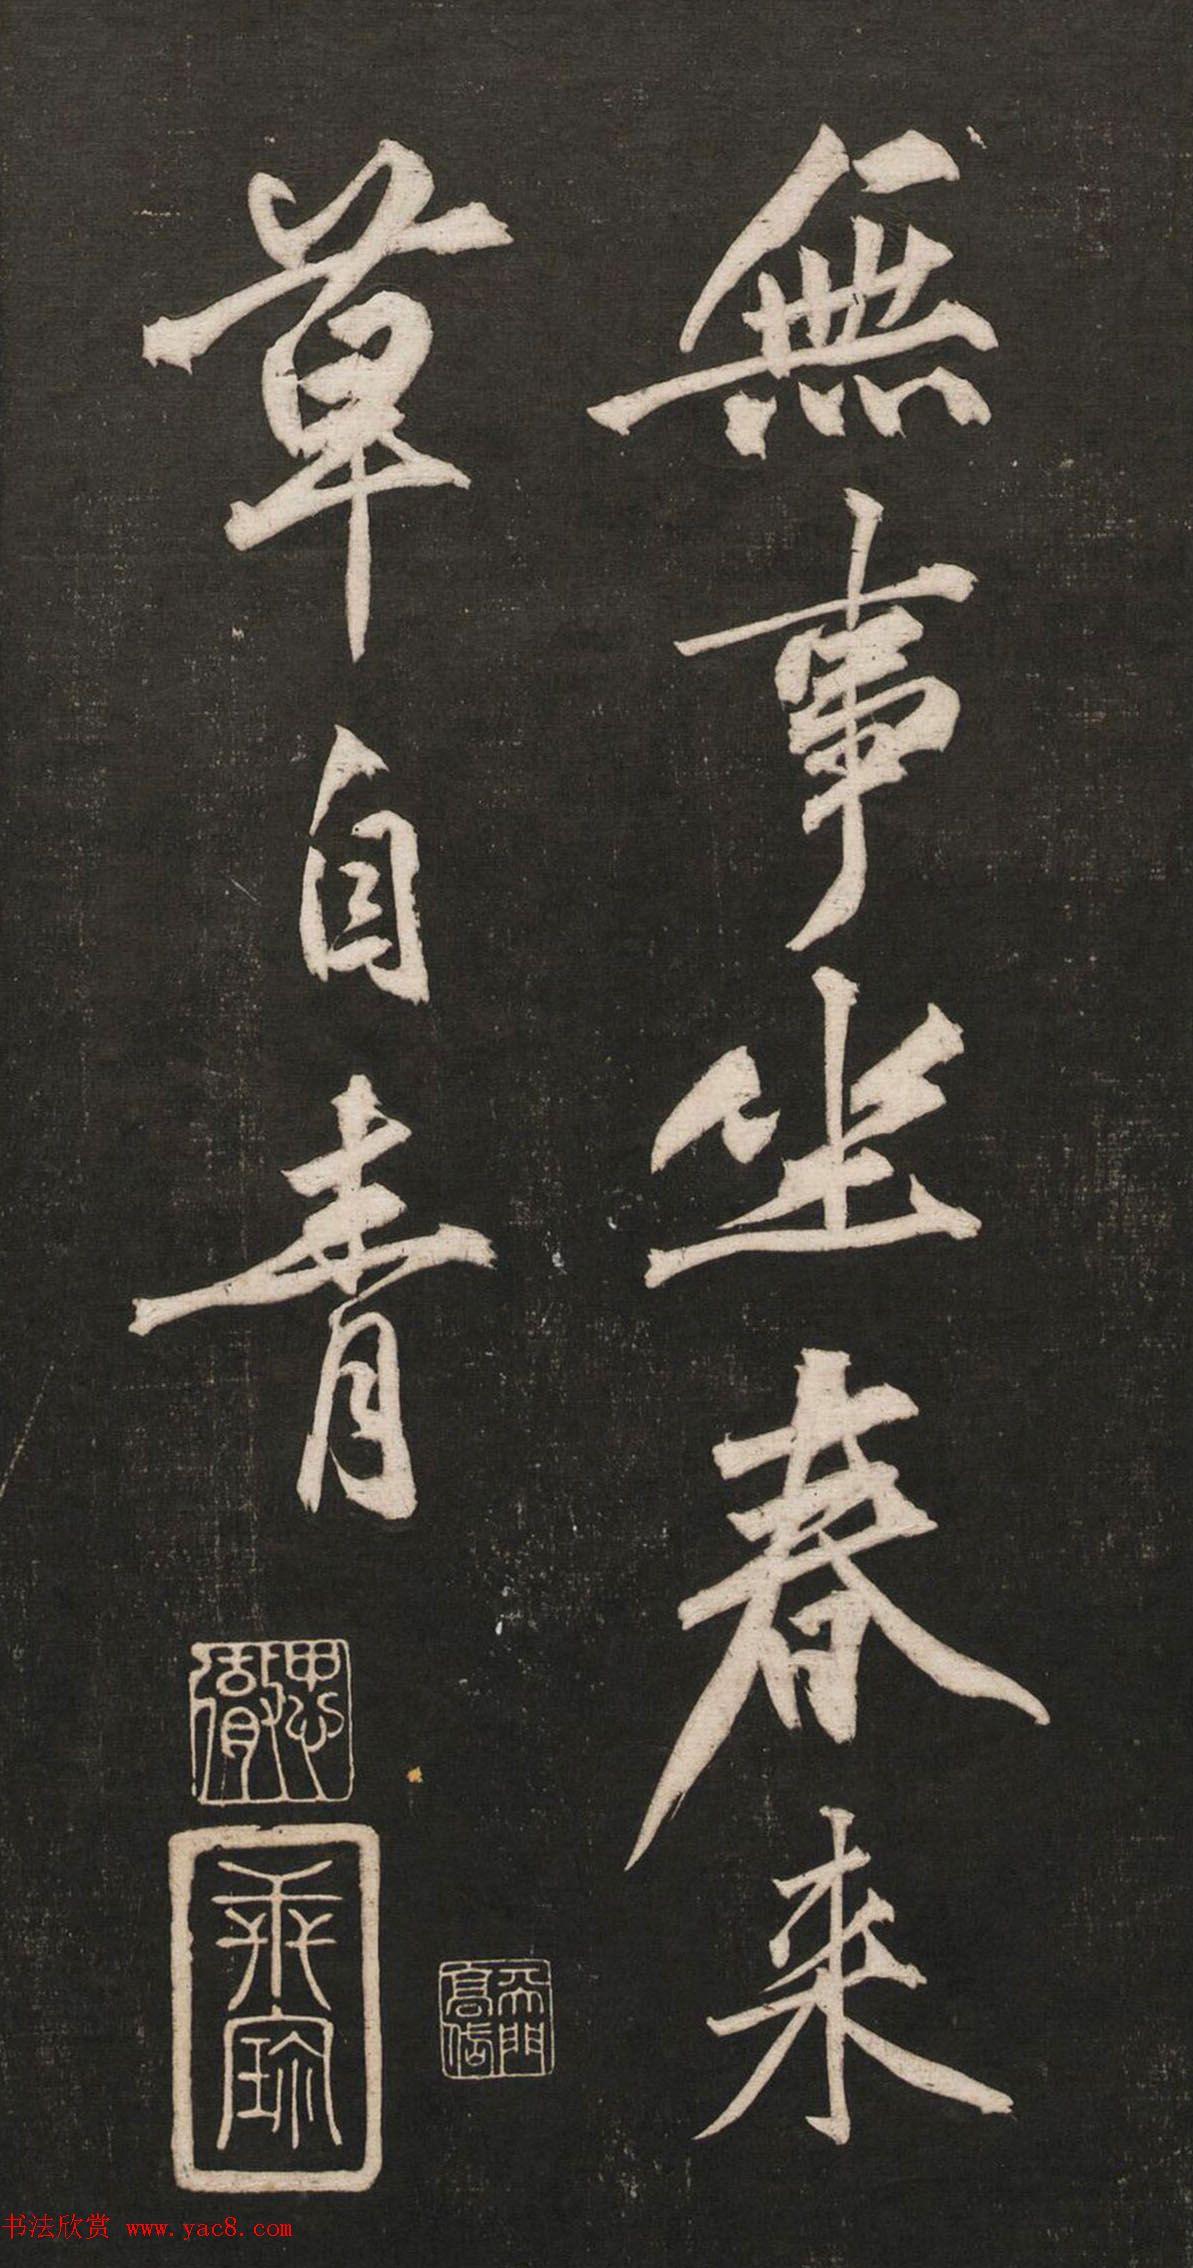 無事坐春来
草自青
思徹
乘珎
書法欣赏 www.yac8.com